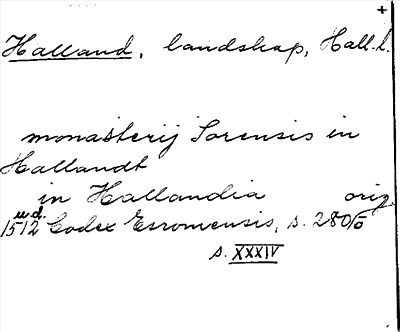 +
Halland, landskap, Hall. l.
monasterij Sorensis in
Hallandt
in Hallandia orig.
u.d.
1512 Codex Esromensis, s. 280 f.
s. XXXIV